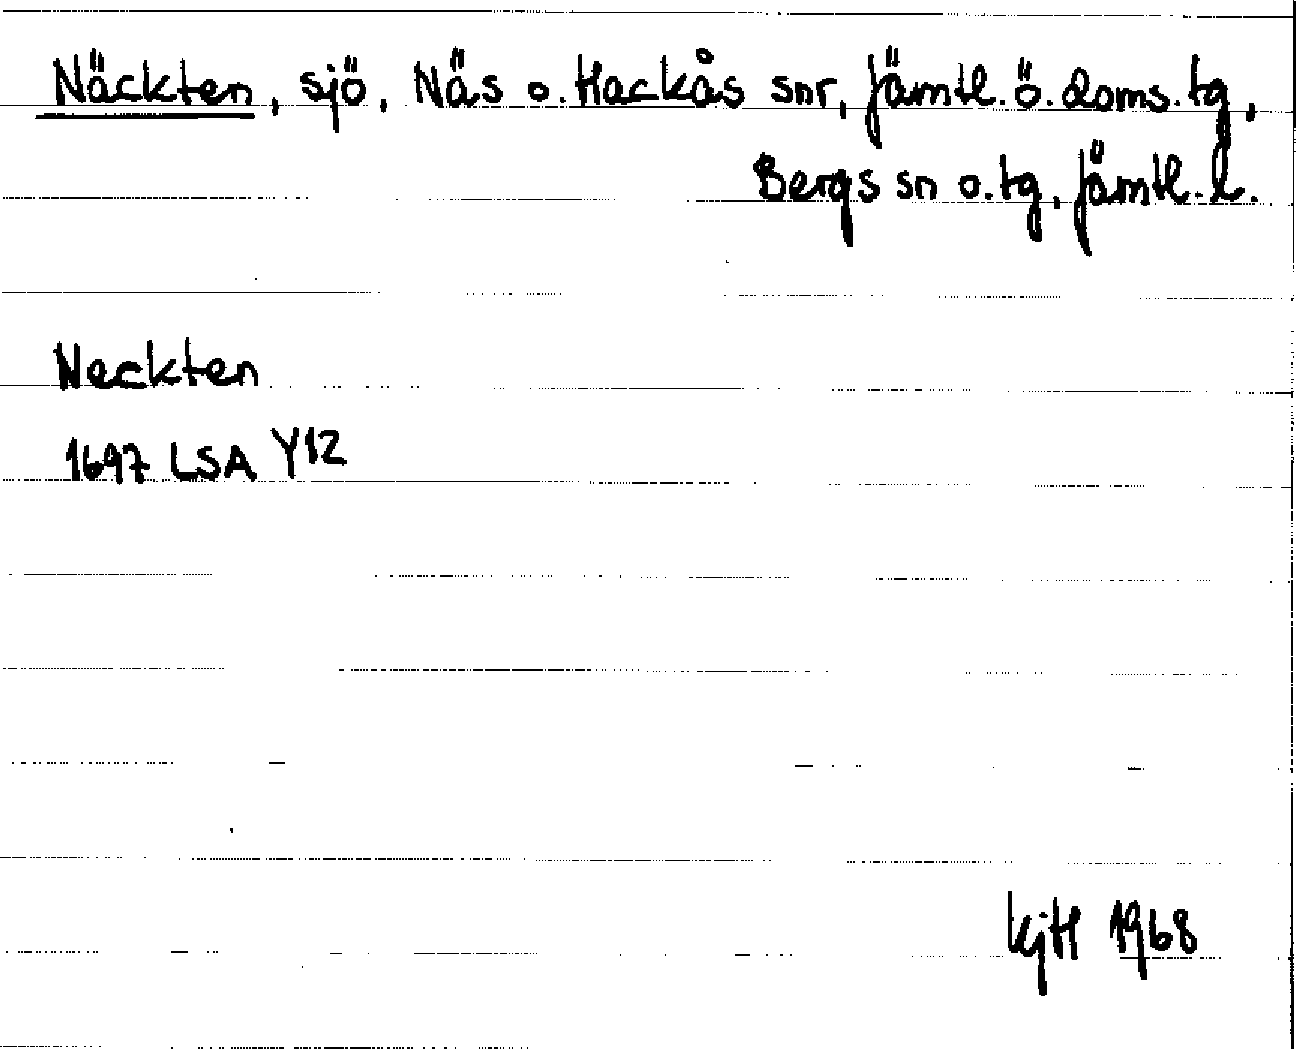 Näckten, sjö, Näs o. Hackås snr, Jämtl. ö. doms. tg,
Bergs sn o. tg, Jämtl. l.
Neckten
1697 LSA Y12
KjH 1968